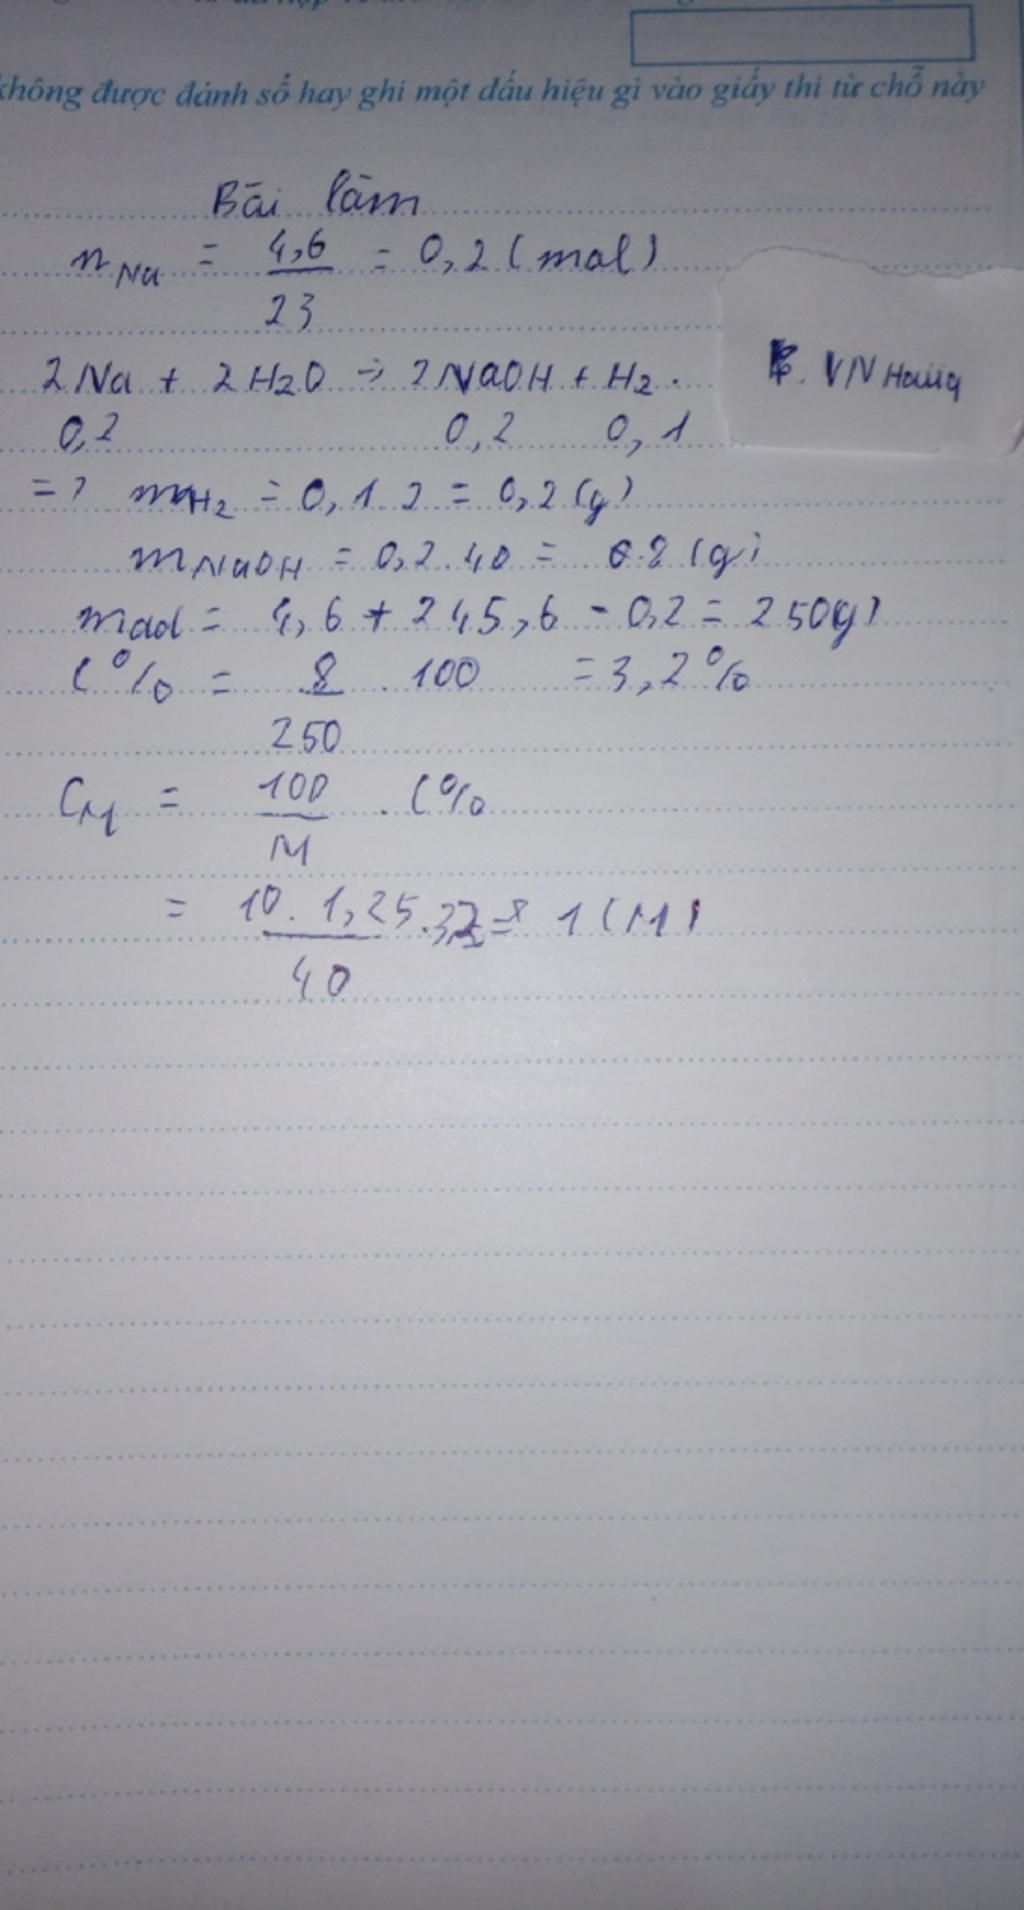 không được đánh số hay ghi một dấu hiệu gì vào giấy thi từ chỗ này
Bài làm
n Na = 4,6 / 23 = 0,2 (mol)
2Na + 2H2O → 2NaOH + H2.
0,2 0,2 0,1
=> mH2 = 0,1.2 = 0,2 (g)
mNaOH = 0,2.40 = 8 (g)
mdd = 4,6 + 245,6 - 0,2 = 250g)
C% = 8 / 250 . 100 = 3,2%
CM = 100 / M . C%
= 10.1,25 / 40 .3,2 = 1 (M)
VN